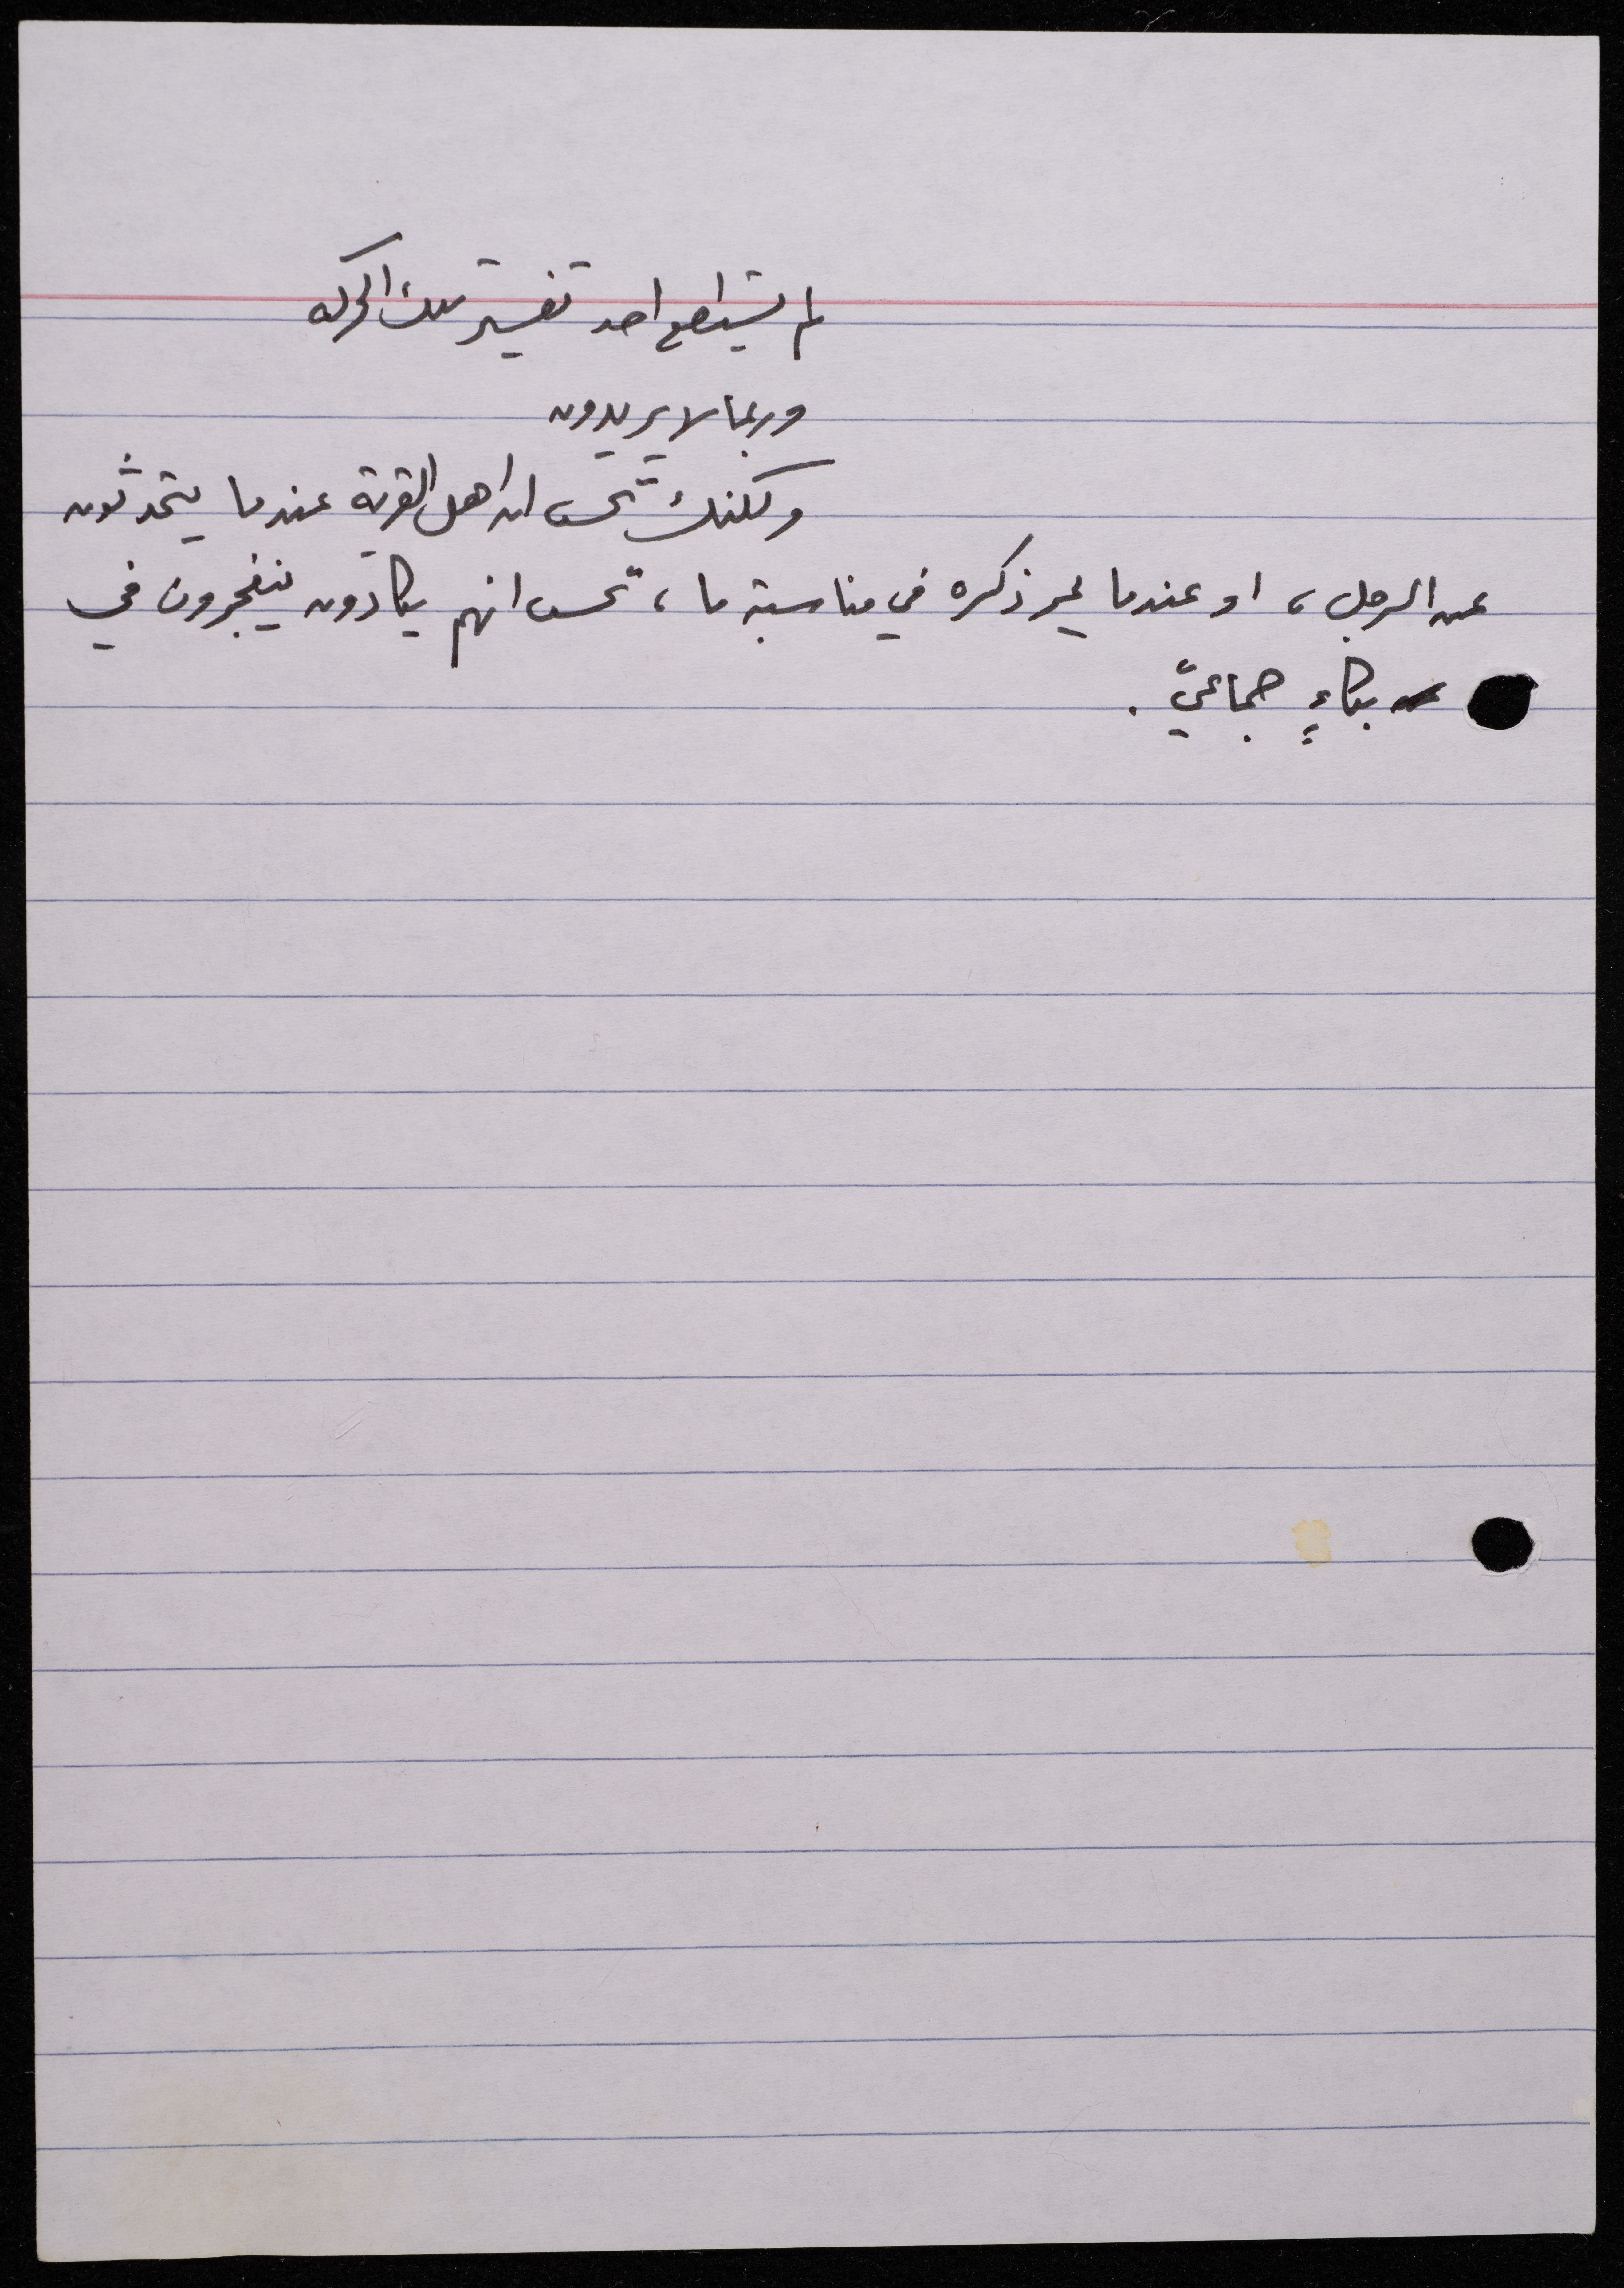 لم يستطع احد تفسير تلك الحركه
وربما لا يريدون
ولكنك تحس ان اهل القرية عندما يتحدثون
عن الرجل، او عندما يمر ذكره في مناسبة ما، تحس انهم يكادون ينفجرون في
بكاءٍ جماعيّ.